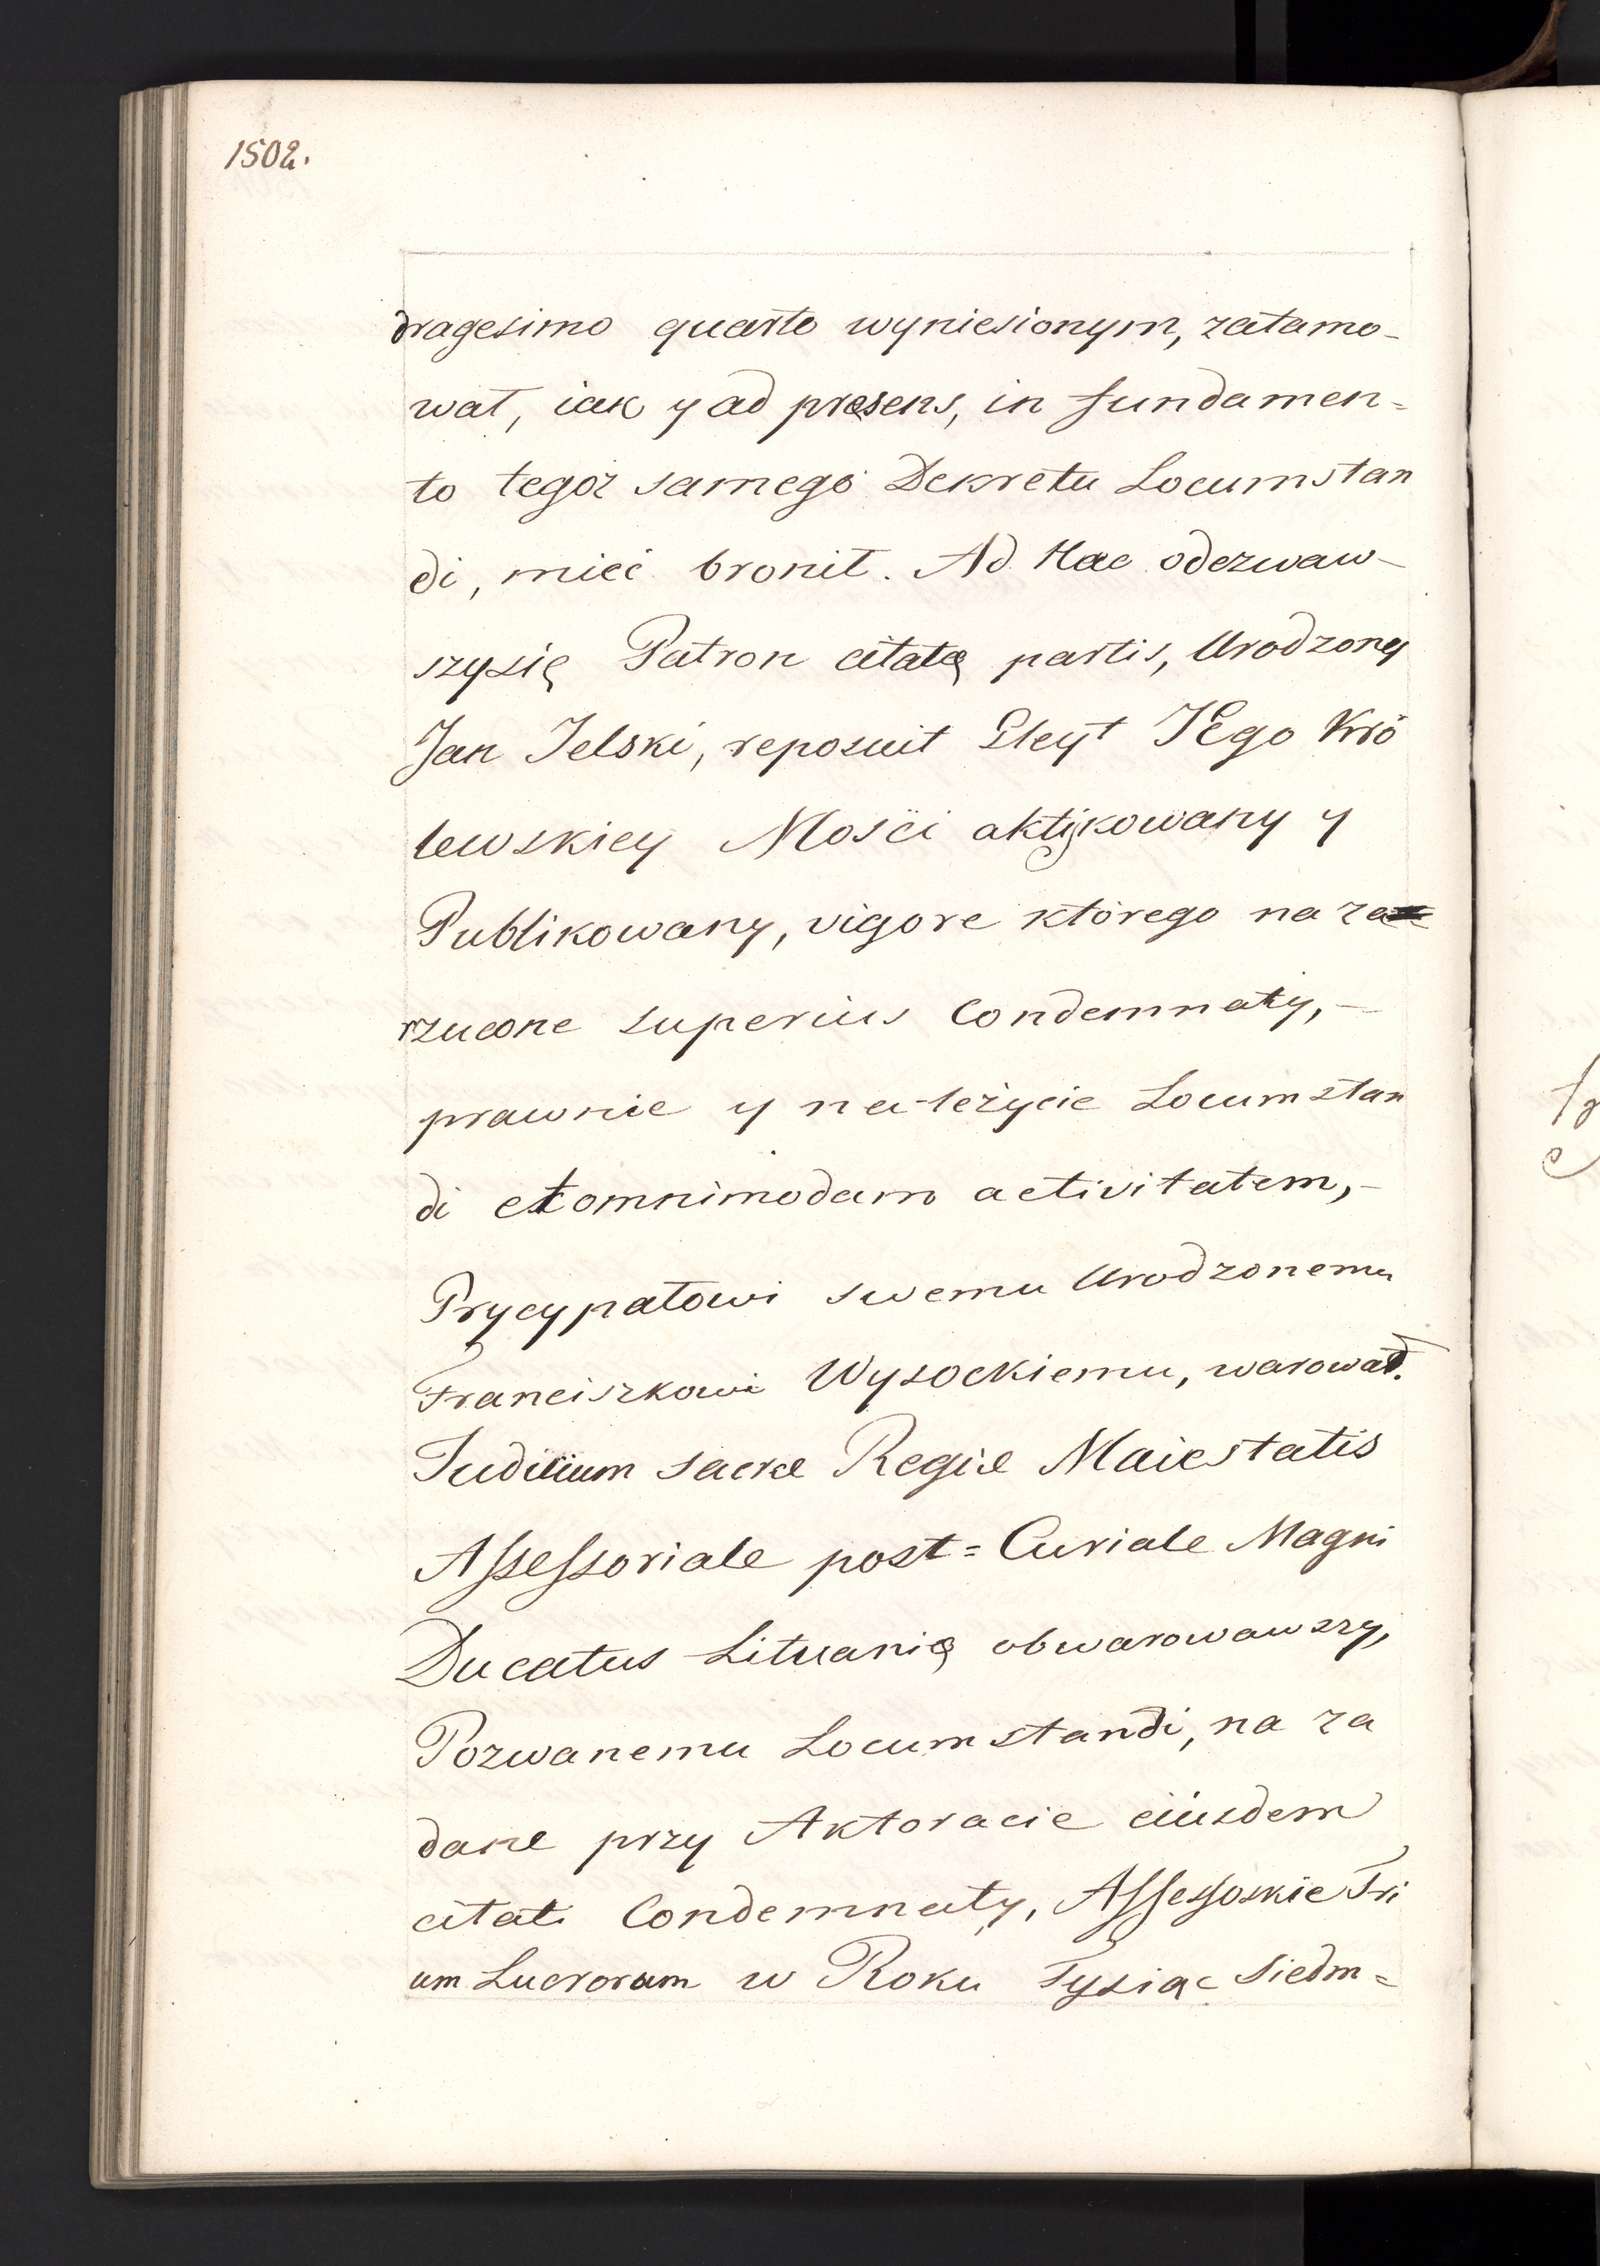 1502.
dragesimo quarto wyniesionym, zatamo-
wał, iak y ad presens, in fundamen=
to tegoż samego Dekretu Locumstan
di, mieć bronił. Ad Hæc odezwaw-
szysię Patron citatę partis, Urodzony
Jan Jelski, reposuit Gleyt JEgo Kró
lewskiey Mosći aktykowany y
Publikowany, vigore którego na za
rzucone superius Condemnaty, -
prawnie y należycie Locumstan
di et omnimodam activitatem, -
Prycypałowi swemu Urodzonemu
Franciszkowi Wysockiemu, warował.
Judicium sacræ Regiæ Maiestatis
Assessoriale post=Curiale Magni
Ducatus Lituanię obwarowawszy,
Pozwanemu Locumstandi, na za
dane przy Aktoracie eiusdem
citati Condemnaty, Assessoskie Tri
um Lucrorum w Roku Tysiąc Siedm=